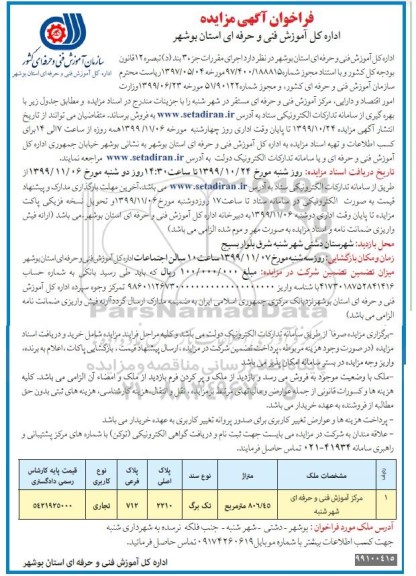 فراخوان آگهی مزایده
اداره کل آموزش فنی و حرفه ای استان بوشهر
سازمان آموزش فنی و حرفه ای کشور
اداره کل آموزش فنی و حرفه ای استان بوشهر
اداره کل آموزش فنی و حرفه ای استان بوشهر در نظر دارد اجرای مقررات جزء ۳۰ بند (د) تبصره ۱۲ قانون
بودجه کل کشور و با استناد مجوز شماره ۹۷/۴۰۰/۱۸۸۸۱۵ مورخه ۱۳۹۷/۰۵/۰۴ ریاست محترم
سازمان آموزش فنی و حرفه ای کشور، و مجوز شماره ۵۱/۹۰۱۲۲ مورخه ۱۳۹۹/۰۶/۲۳ وزارت
امور اقتصاد و دارایی، مرکز آموزش فنی و حرفه ای مستقر در شهر شنبه را با جزییات مندرج در اسناد مزایده و مطابق جدول زیر با
بهره گیری از سامانه تدارکات الکترونیکی ستاد به آدرس www.setadiran.ir به فروش برساند. متقاضیان می توانند از تاریخ
انتشار آگهی مزایده ۱۳۹۹/۱۰/۲۴ تا پایان وقت اداری روز چهارشنبه مورخه ۱۳۹۹/۱۱/۰۶ همه روزه از ساعت ۷ الی ۱۴ برای
کسب اطلاعات و تهیه اسناد مزایده به اداره کل آموزش فنی و حرفه ای استان بوشهر به نشانی بوشهر خیابان جمهوری اداره کل
آموزش فنی و حرفه ای و یا سامانه تدارکات الکترونیک دولت به آدرس www.setadiran.ir مراجعه نمایند.
تاریخ دریافت اسناد مزایده: روز شنبه مورخ ۱۳۹۹/۱۰/۲۴ تا ساعت ۱۴:۳۰ روز دو شنبه مورخ ۱۳۹۹/۱۱/۰۶ از
طریق سامانه تدارکات الکترونیکی ستاد به آدرس www.setadiran.ir می باشد، آخرین مهلت بارگذاری مدارک و پیشنهاد
قیمت به صورت الکترونیکی در سامانه ستاد تا ساعت ۱۷ روز دوشنبه مورخ ۱۳۹۹/۱۱/۰۶ و تحویل نسخه فیزیکی پاکت
مزایده تا پایان وقت اداری دوشنبه ۱۳۹۹/۱۱/۰۶ به دبیرخانه اداره کل آموزش فنی و حرفه ای استان بوشهر می باشد (ارائه فیش
واریزی ضمانت نامه و اسناد مزایده به صورت مهر و موم شده الزامی می باشد)
محل بازدید: شهرستان دشتی شهر شنبه شرق بلوار بسیج
زمان و مکان بازگشایی: روز سه شنبه مورخ ۱۳۹۹/۱۱/۰۷ ساعت ۱۰ سالن اجتماعات اداره کل آموزش فنی و حرفه ای استان بوشهر
میزان تضمین تضمین شرکت در مزایده: مبلغ ۱۰۰/۰۰۰/۰۰۰ ریال که باید طی رسید بانکی به شماره حساب
با شناسه واریز تمرکز وجوه سپرده اداره کل آموزش
فنی و حرفه ای استان بوشهر نزد بانک مرکزی جمهوری اسلامی ایران به ضمیمه مدارک ارسال گردد (آوردن فیش واریزی ضمانت نامه
الزامی می باشد)
-برگزاری مزایده صرفا از طریق سامانه تدارکات الکترونیک دولت می باشد و کلیه مراحل فرایند مزایده شامل خرید و دریافت اسناد
مزایده (در صورت وجود هزینه مربوطه)، پرداخت تضمین شرکت در مزایده، ارسال پیشنهاد قیمت، بازگشایی پاکات، اعلام به برنده،
واریز وجه مزایده در بستر سامانه امکان پذیر می باشد
-ملک با وضعیت موجود به فروش می رسد و بازدید از ملک و پر کردن فرم بازدید از ملک و امضاء آن الزامی می باشد. کلیه
هزینه ها و کسورات قانونی از جمله عوارض و مالیاتهای مرتبط بر مزایده، نقل و انتقال، هزینه کارشناسی، هزینه های ثبتی بدون حق
مطالبه از فروشنده به عهده خریدار می باشد.
- پرداخت هزینه ها و عوارض تغییر کاربری برای صدور پروانه تغییر کاربری به عهده خریدار می باشد
- علاقه مندان به شرکت در مزایده می بایست جهت ثبت نام و دریافت گواهی الکترونیکی (توکن) با شماره های مرکز پشتیبانی و
راهبری سامانه ۴۱۹۳۴-۰۲۱ تماس حاصل فرمایند.
ردیف مشخصات ملک متراژ نوع سند پلاک اصلی پلاک فرعی نوع کاربری قیمت پایه کارشناس رسمی دادگستری
۱ مرکز آموزش فنی و حرفه ای شهر شنبه ۸۰۶/۴۵ مترمربع تک برگ ۲۲۱۰ ۷۱۲ تجاری ۵۴۲۱۹۲۵۰۰۰
آدرس ملک مورد فراخوان: بوشهر - دشتی - شهر شنبه - جنب فلکه نرسیده به شهرداری شنبه
جهت کسب اطلاعات بیشتر با شماره موبایل ۰۹۱۷۴۲۶۰۶۱۹ تماس حاصل فرمائید.
اداره کل آموزش فنی و حرفه ای استان بوشهر
۹۹۱۰۰۴۱۵
ParsNamadData